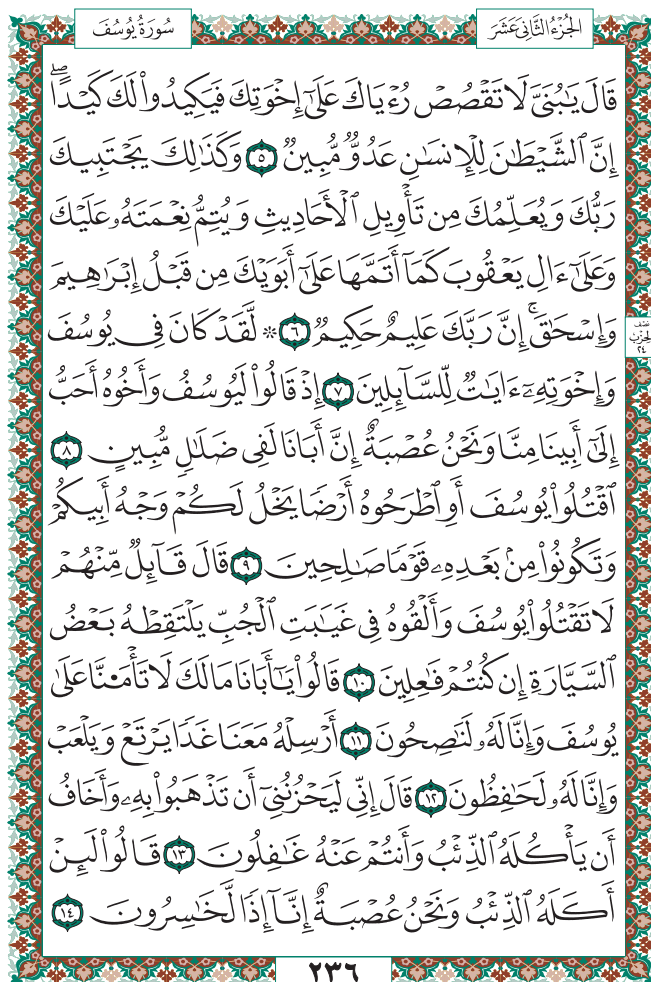 سُورَةُ يُوسُفَ
الجُزْءُ الثَّانِيَ عَشَرَ
قَالَ يَٰبُنَىَّ لَا تَقْصُصْ رُءْيَاكَ عَلَىٰٓ إِخْوَتِكَ فَيَكِيدُوا۟ لَكَ كَيْدًاۖ
إِنَّ ٱلشَّيْطَٰنَ لِلْإِنسَٰنِ عَدُوٌّ مُّبِينٌ ٥ وَكَذَٰلِكَ يَجْتَبِيكَ
رَبُّكَ وَيُعَلِّمُكَ مِن تَأْوِيلِ ٱلْأَحَادِيثِ وَيُتِمُّ نِعْمَتَهُۥ عَلَيْكَ
وَعَلَىٰٓ ءَالِ يَعْقُوبَ كَمَآ أَتَمَّهَا عَلَىٰٓ أَبَوَيْكَ مِن قَبْلُ إِبْرَٰهِيمَ
وَإِسْحَٰقَۚ إِنَّ رَبَّكَ عَلِيمٌ حَكِيمٌ ٦ ۞ لَّقَدْ كَانَ فِى يُوسُفَ
نصف
الحزب
٢٤
وَإِخْوَتِهِۦٓ ءَايَٰتٌ لِّلسَّآئِلِينَ ٧ إِذْ قَالُوا۟ لَيُوسُفُ وَأَخُوهُ أَحَبُّ
إِلَىٰٓ أَبِينَا مِنَّا وَنَحْنُ عُصْبَةٌ إِنَّ أَبَانَا لَفِى ضَلَٰلٍ مُّبِينٍ ٨
ٱقْتُلُوا۟ يُوسُفَ أَوِ ٱطْرَحُوهُ أَرْضًا يَخْلُ لَكُمْ وَجْهُ أَبِيكُمْ
وَتَكُونُوا۟ مِنۢ بَعْدِهِۦ قَوْمًا صَٰلِحِينَ ٩ قَالَ قَآئِلٌ مِّنْهُمْ
لَا تَقْتُلُوا۟ يُوسُفَ وَأَلْقُوهُ فِى غَيَٰبَتِ ٱلْجُبِّ يَلْتَقِطْهُ بَعْضُ
ٱلسَّيَّارَةِ إِن كُنتُمْ فَٰعِلِينَ ١٠ قَالُوا۟ يَٰٓأَبَانَا مَا لَكَ لَا تَأْمَ۫نَّا عَلَىٰ
يُوسُفَ وَإِنَّا لَهُۥ لَنَٰصِحُونَ ١١ أَرْسِلْهُ مَعَنَا غَدًا يَرْتَعْ وَيَلْعَبْ
وَإِنَّا لَهُۥ لَحَٰفِظُونَ ١٢ قَالَ إِنِّى لَيَحْزُنُنِىٓ أَن تَذْهَبُوا۟ بِهِۦ وَأَخَافُ
أَن يَأْكُلَهُ ٱلذِّئْبُ وَأَنتُمْ عَنْهُ غَٰفِلُونَ ١٣ قَالُوا۟ لَئِنْ
أَكَلَهُ ٱلذِّئْبُ وَنَحْنُ عُصْبَةٌ إِنَّآ إِذًا لَّخَٰسِرُونَ ١٤
٢٣٦